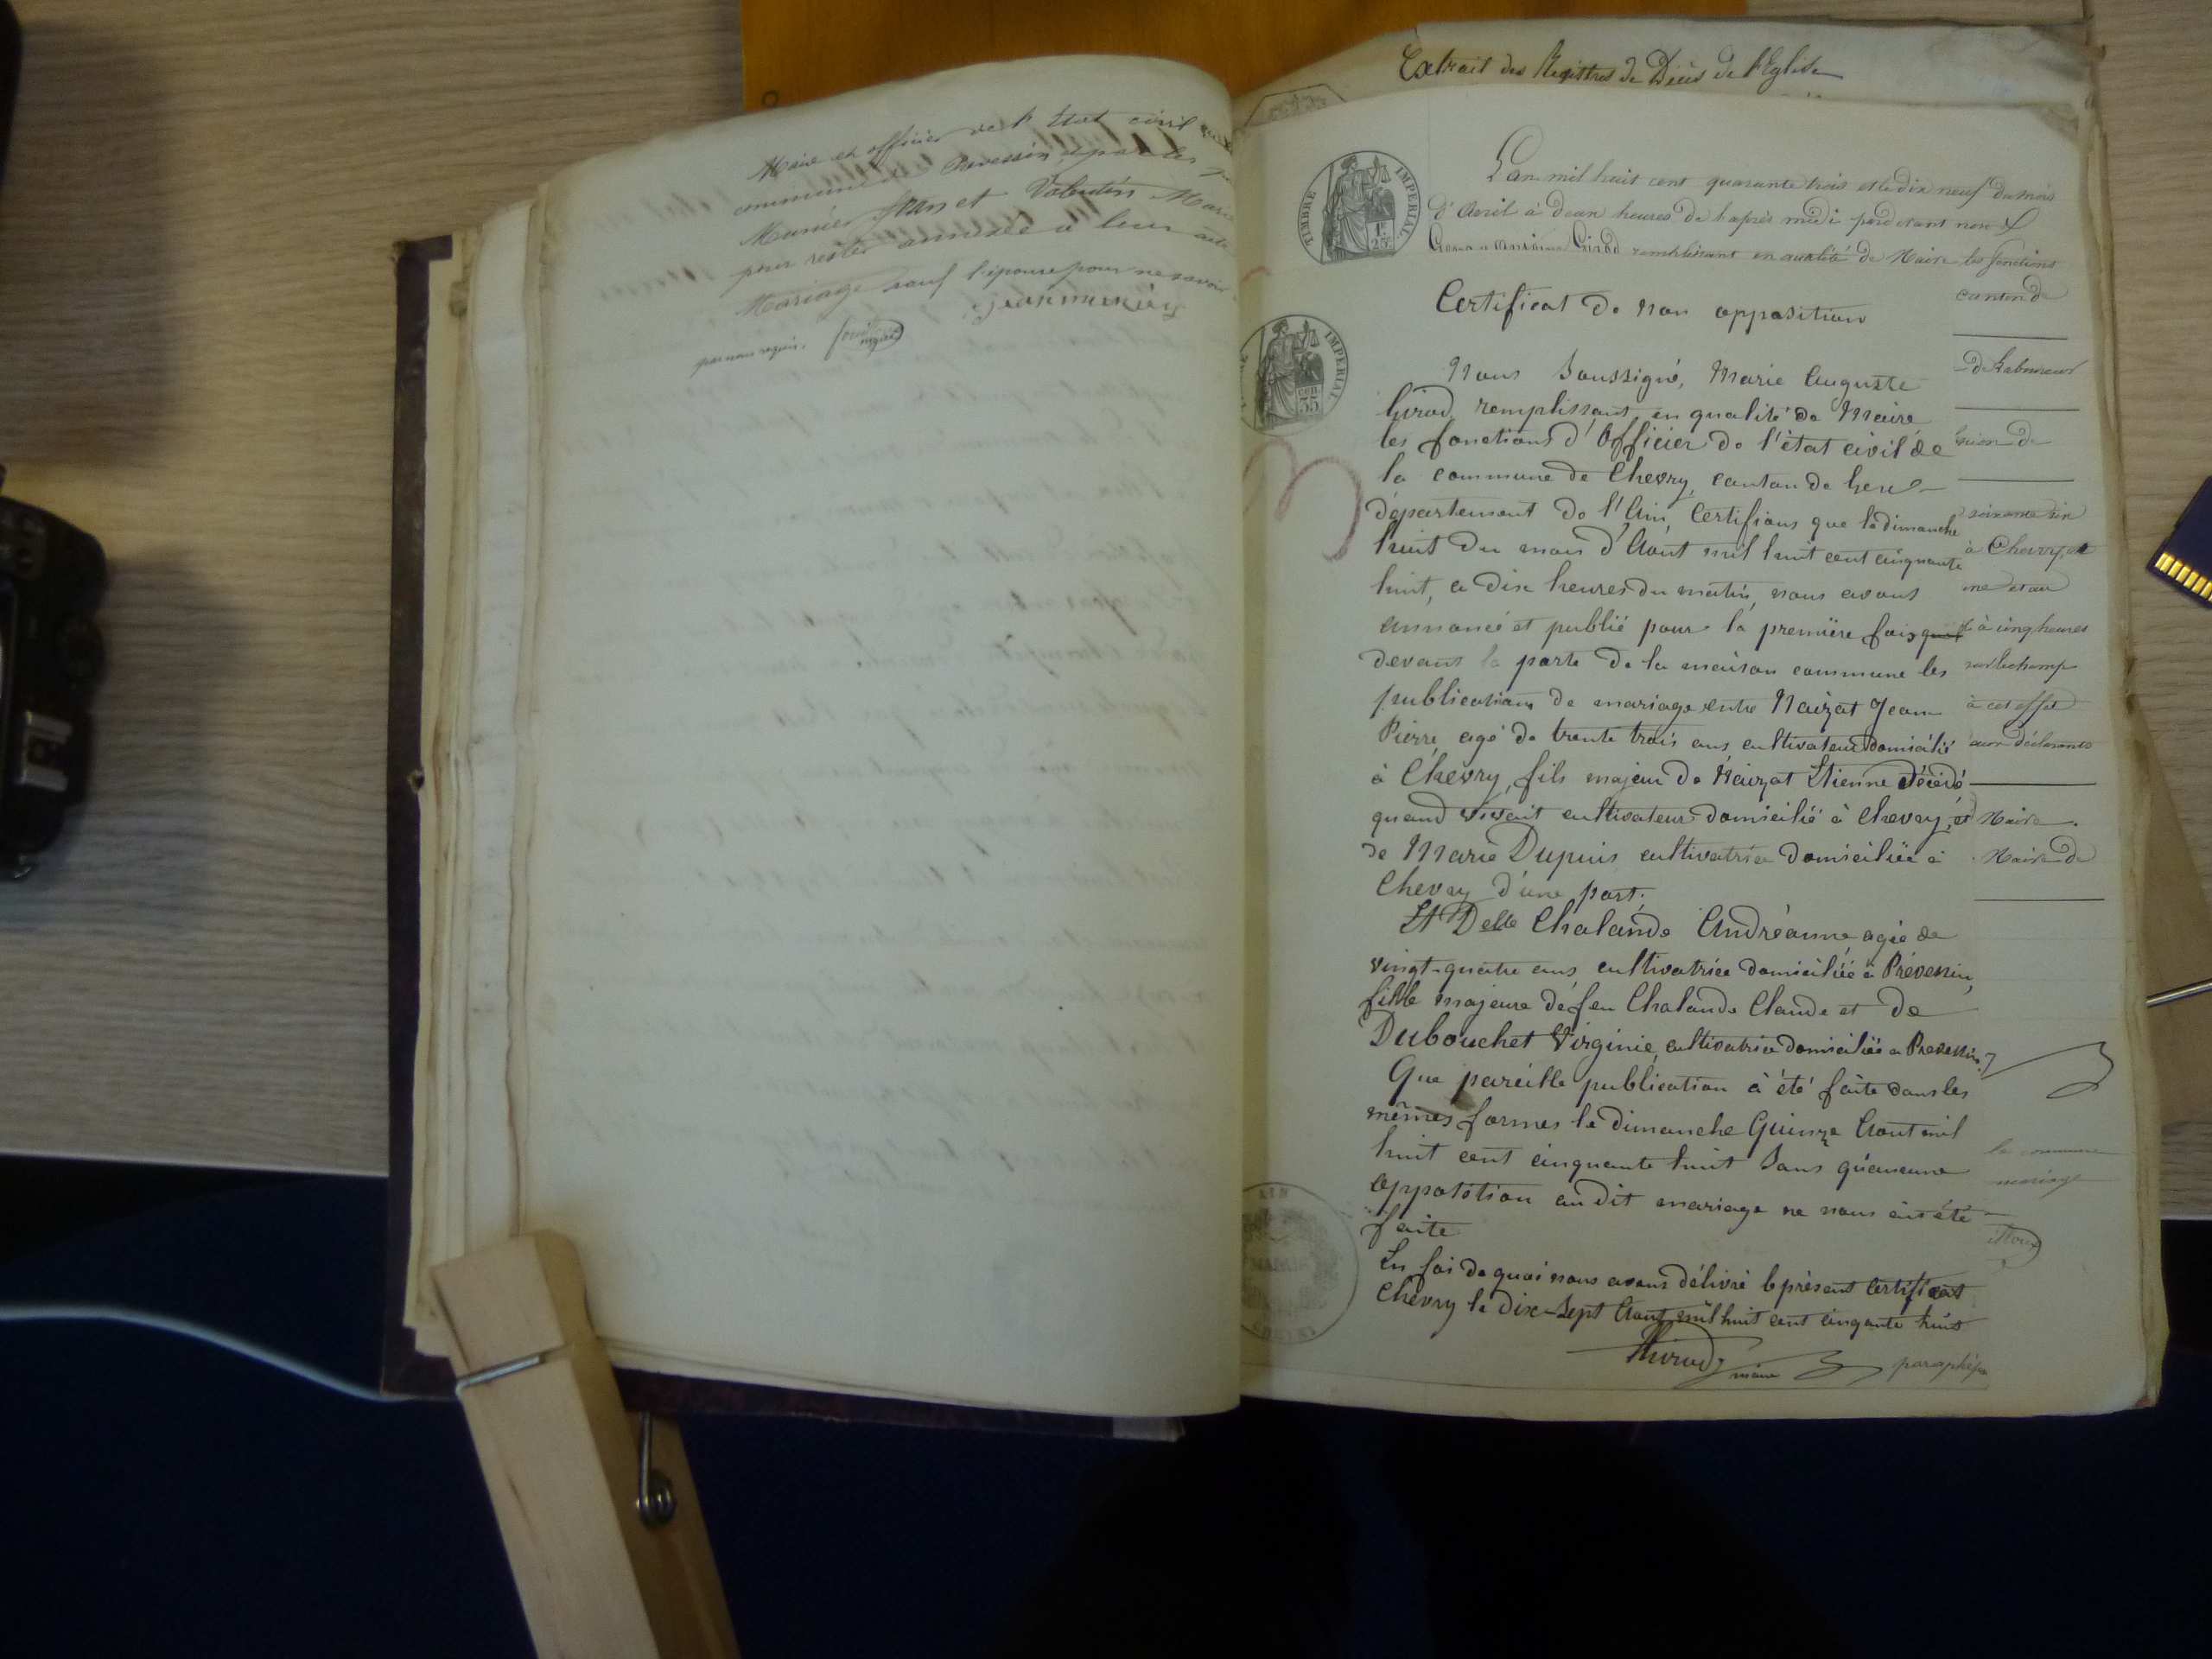 Maire et officier de l'Etat civil
commune de Prevessin, et par les
Munier Jean et Valentin Marie
pour rester annexée à leur acte
Mariage sauf l'épouse pour ne savoir
Jean munier
par nous requis.
Extrait des Registres de Décès de l'Eglise
L'an mil huit cent quarante trois et le dix neuf du mois
d'Avril à deux heures de l'après midi pardevant nous
Girod remplissant en qualité de Maire les fonctions
TIMBRE IMPERIAL
1f 25c
canton de
Certificat de non opposition
IMPERIAL
35
Nous Soussigné, Marie Auguste
Girod, remplissant en qualité de Maire
les fonctions d'Officier de l'état civil de
la commune de Chevry, canton de Gex
département de l'Ain, Certifions que le dimanche
huit du mois d'Aout mil huit cent cinquante
huit, a dix heures du matin, nous avons
annoncé et publié pour la première fois
devant la porte de la maison commune les
publications de mariage entre Naizot Jean
Pierre, agé de trente trois ans cultivateur domicilié
à Chevry, fils majeur de Naizot Etienne décédé
quand vivait cultivateur domicilié à Chevry, et
de Marie Dupuis cultivatrice domiciliée à
Chevry d'une part.
Et Delle Chalande Andréanne, agée de
vingt-quatre ans, cultivatrice domiciliée à Prévessin,
fille majeure de feu Chalande Claude et de
Dubouchet Virginie, cultivatrice domiciliée a Prevessin.
Que pareille publication à été faite dans les
mêmes formes le dimanche Quinze Aout mil
huit cent cinquante huit Sans qu'aucune
oppossition au dit mariage ne nous ait été
faite
En foi de quoi nous avons délivré le présent certificat
Chevry le dix-Sept Aout mil huit cent cinqante huit
Girod
maire
paraphé par
de Laboureur
à Chevry, et
à cinq heures
sur le champ
à cet effet
aux déclarants
Maire.
Maire de
la commune
mariage
AIN
MAIRIE